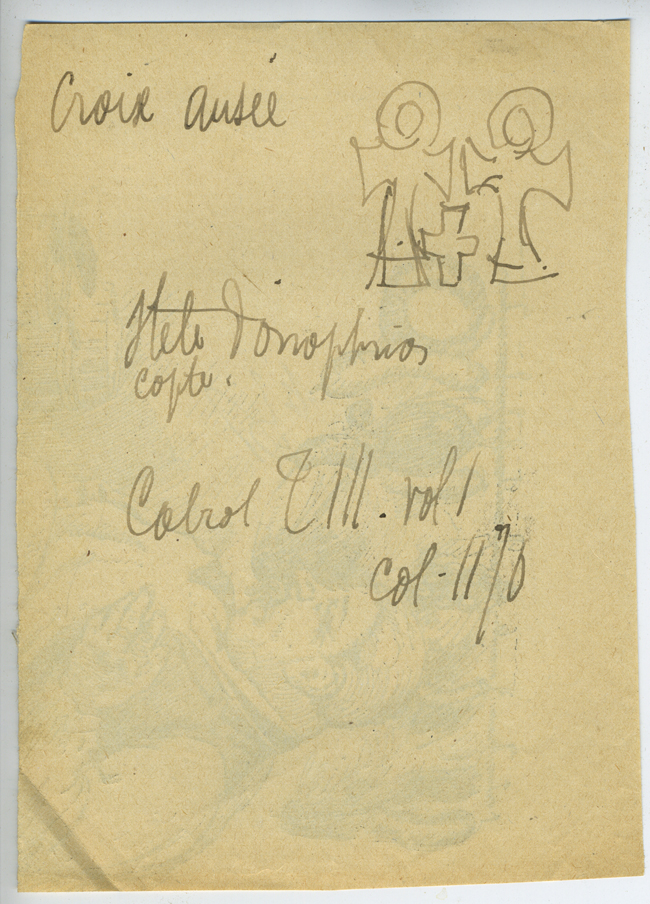 Croix ansée
Stele Donophrios
copte.
Cabrol T III. vol 1
col.